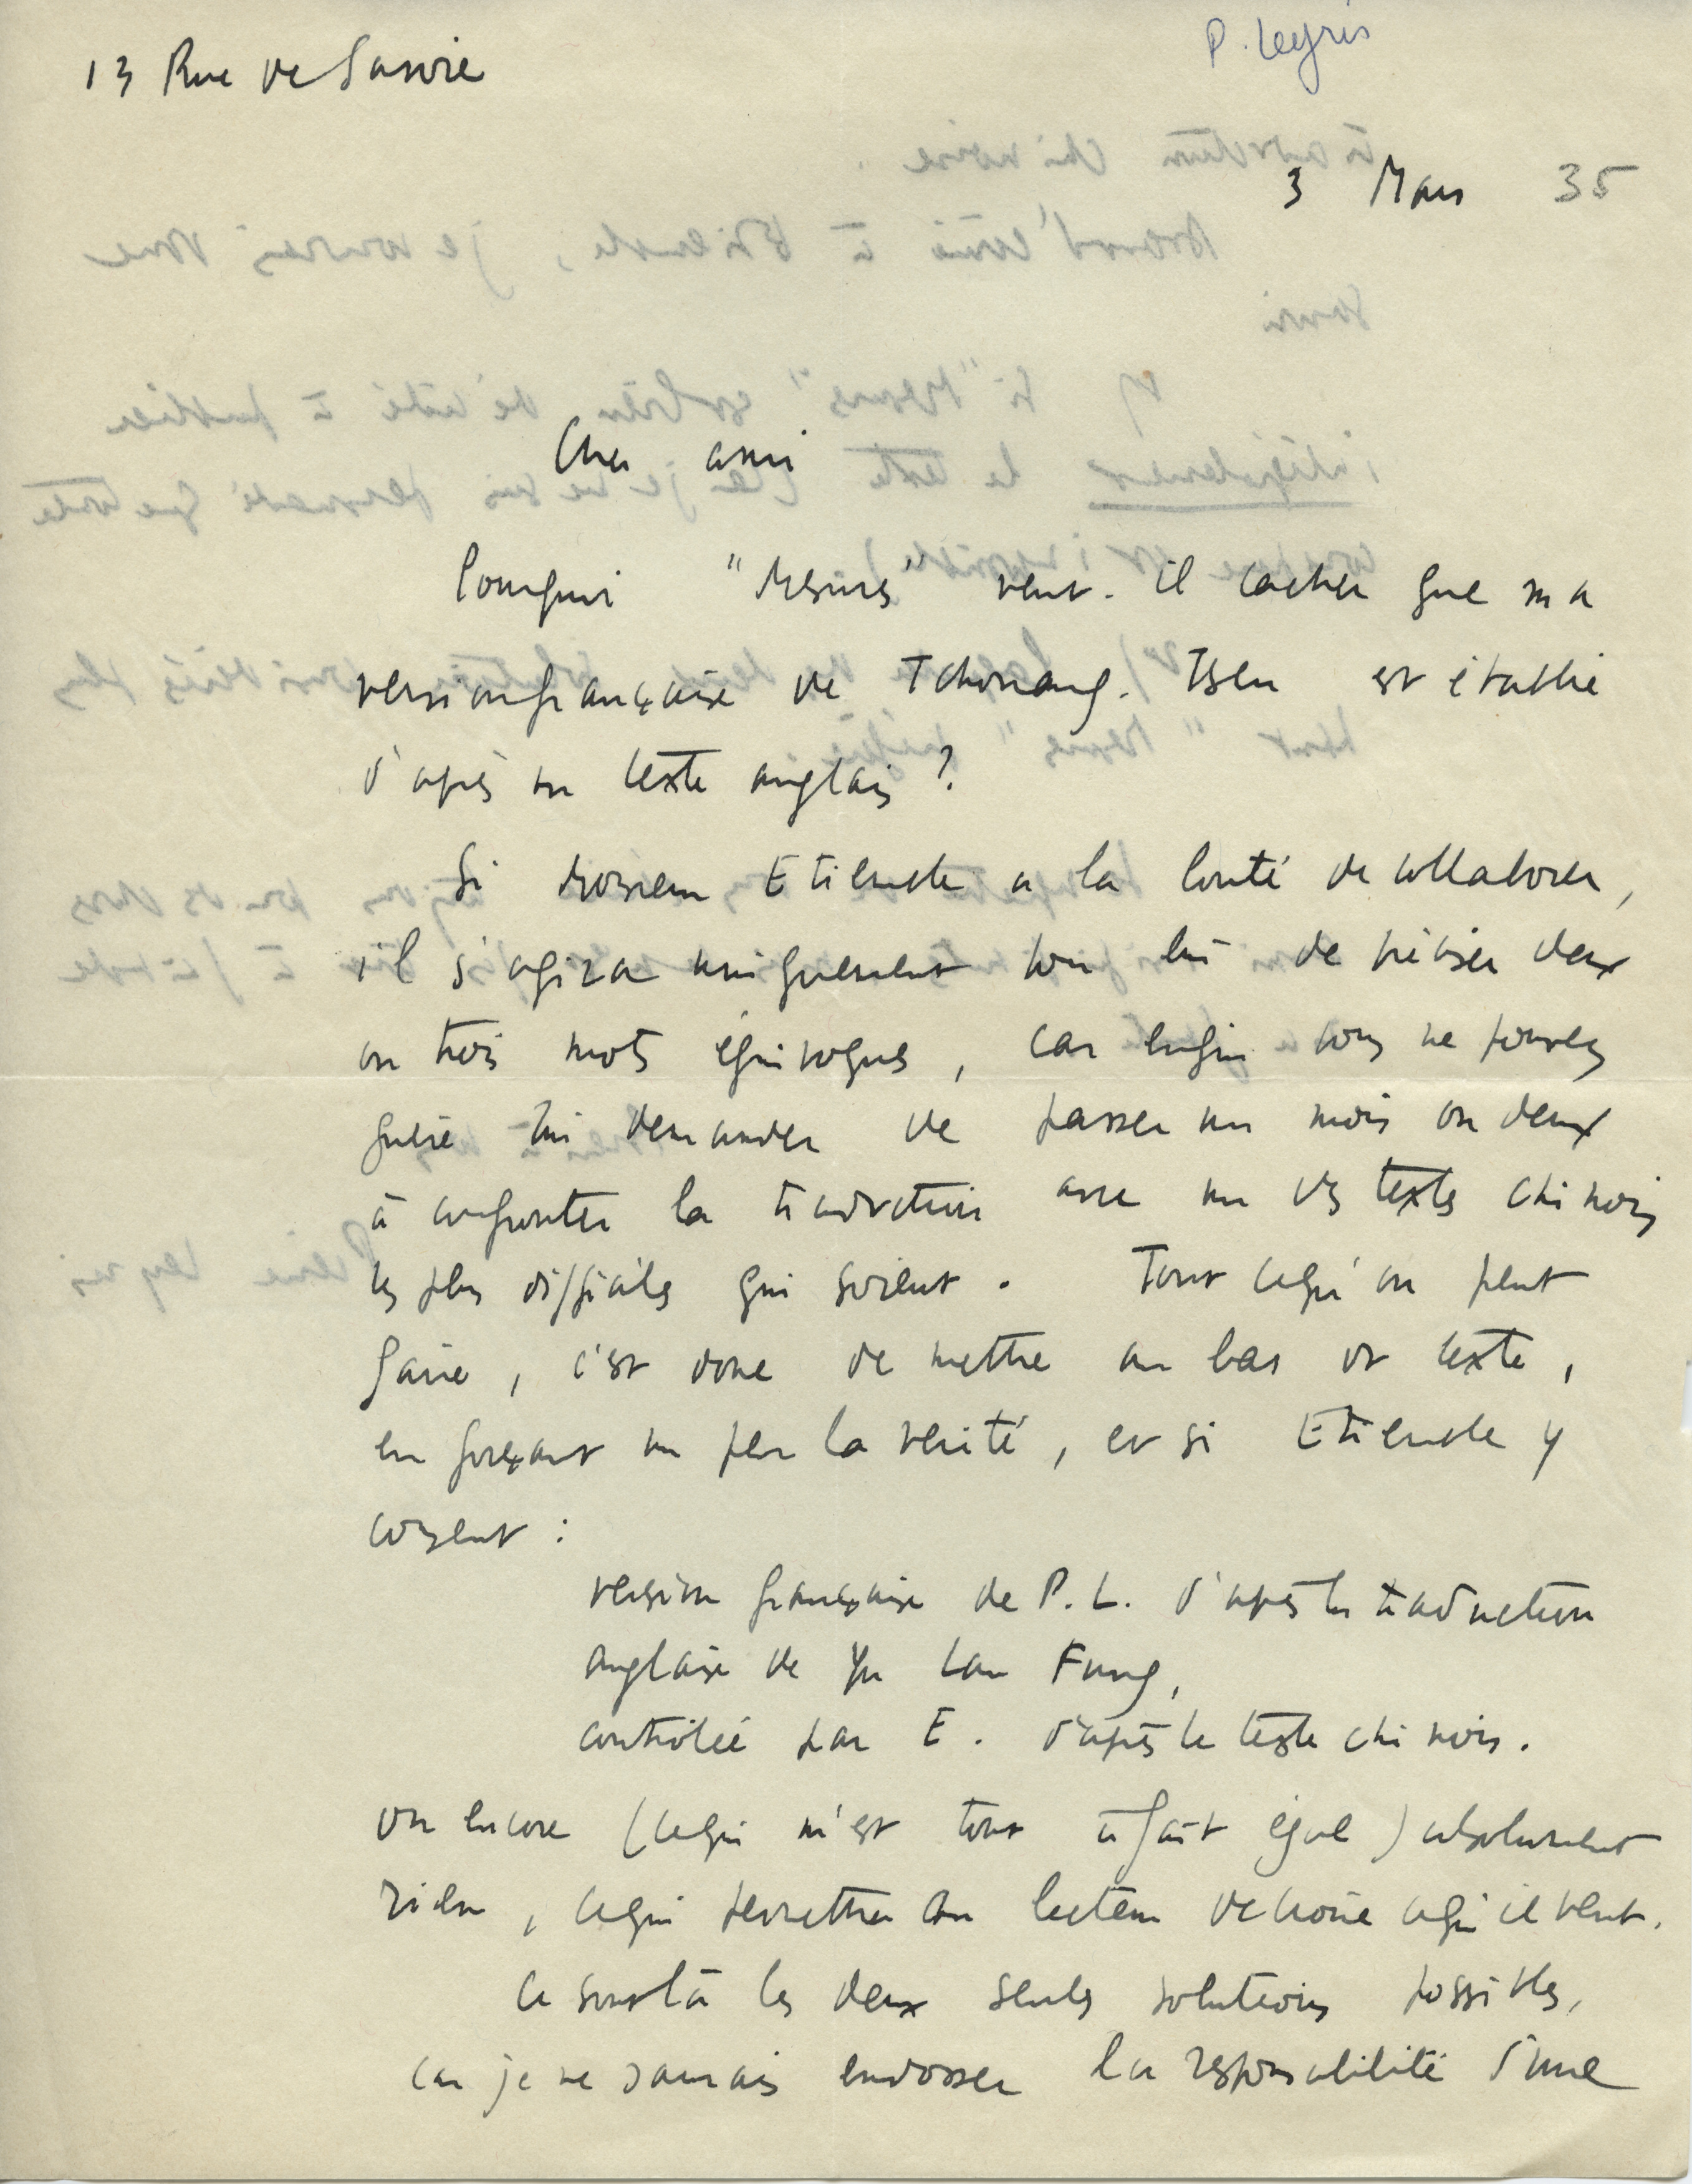 P. Leyris
13 Rue de Savoie
3 Mars 35
Cher ami
Pourquoi "Mesures" veut-il cacher que ma
version française de Tchouang-Tseu est établie
d'après un texte anglais ?
Si Monsieur Etiemble a la bonté de collaborer,
il s'agira uniquement pour lui de préciser deux
ou trois mots équivoques, car enfin vous ne pouvez
guère lui demander de passer un mois ou deux
à confronter la traduction avec un des textes chinois
les plus difficiles qui soient. Tout ce qu'on peut
faire, c'est donc de mettre au bas du texte,
en forçant un peu la vérité, et si Etiemble y
consent :
version française de P. L. d'après la traduction
anglaise de Yu Lan Fung,
contrôlée par E. d'après le texte chinois.
ou encore (ce qui m'est tout à fait égal) absolument
rien, ce qui permettra au lecteur de croire ce qu'il veut.
Ce sont là les deux seules solutions possibles,
car je ne saurais endosser la responsabilité d'une